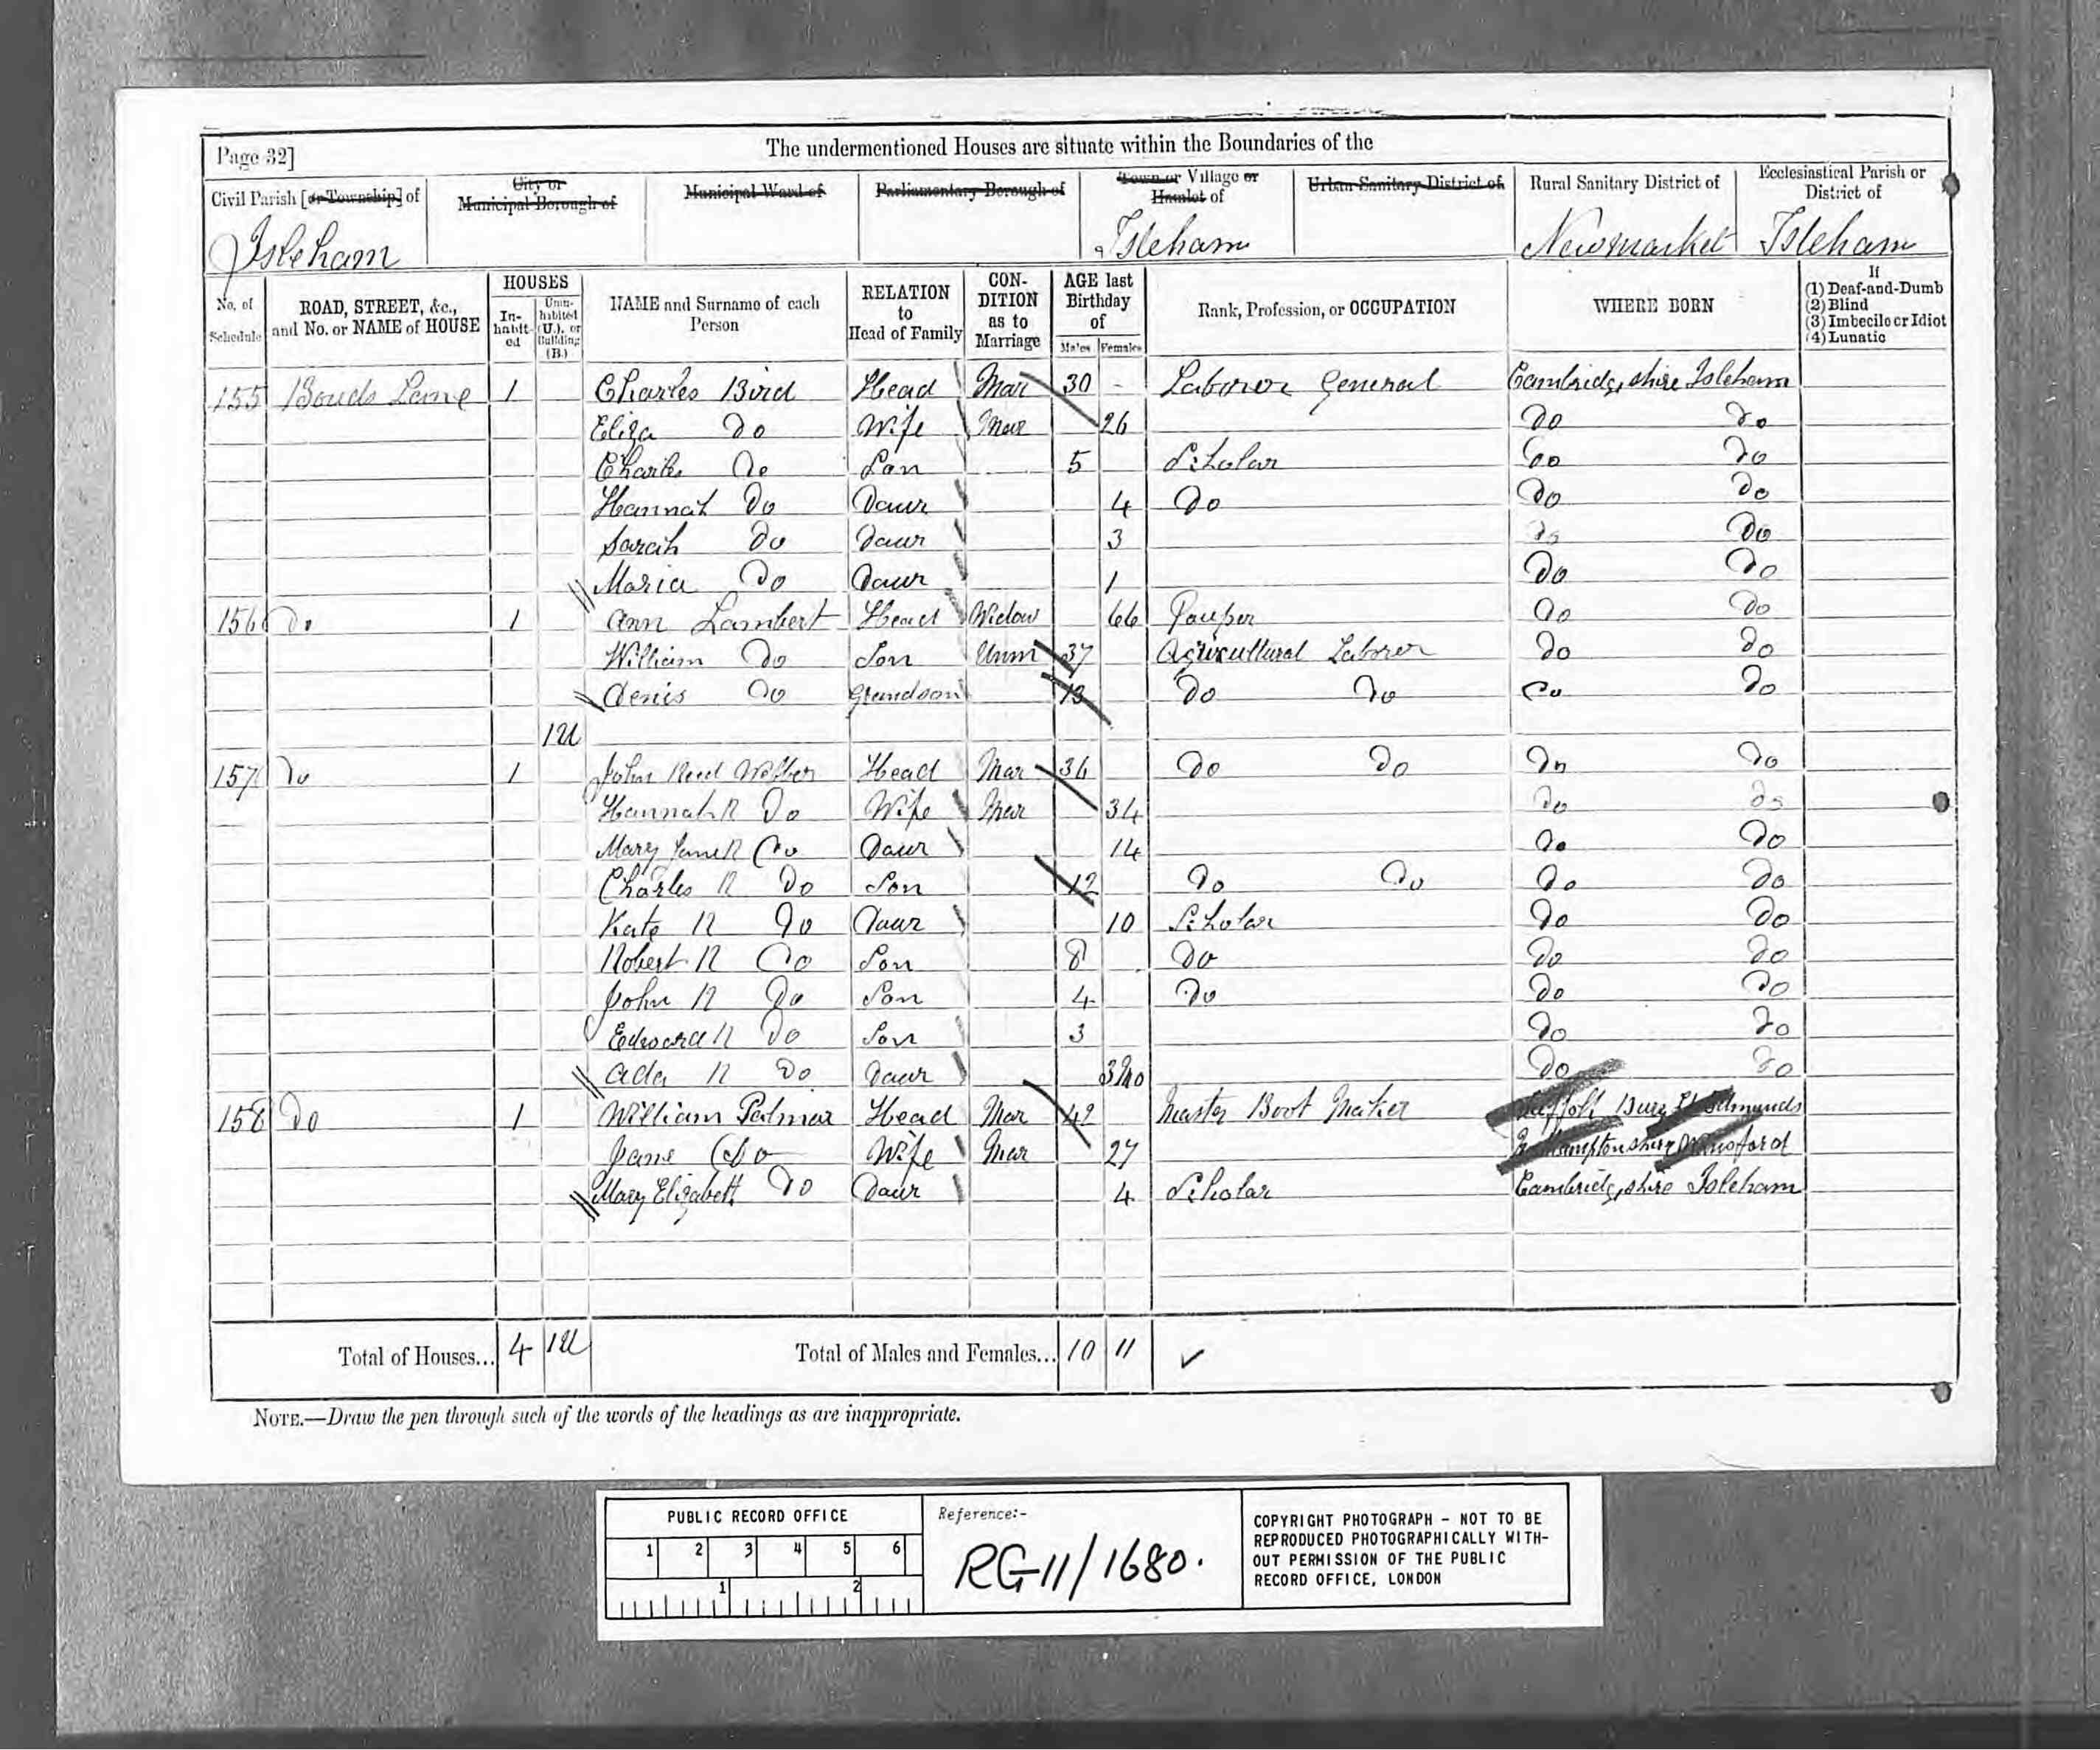 The undermentioned Houses are situate within the Boundaries of the
Page 32]
Civil Parish [or Township] of
City or Municipal Borough of
Municipal Ward of
Parliamentary Borough of
Town or Village or Hamlet of
Urban Sanitary District of
Rural Sanitary District of
Ecclesiastical Parish or District of
Isleham Isleham Newmarket Isleham
No. of Schedule
ROAD, STREET, &c., and No. or NAME of HOUSE
HOUSES
In-habit-ed
Unin-habited (U.), or Building (B.)
NAME and Surname of each Person
RELATION to Head of Family
CON-DITION as to Marriage
AGE last Birthday of
Males Females
Rank, Profession, or OCCUPATION
WHERE BORN
If
(1) Deaf-and-Dumb
(2) Blind
(3) Imbecile or Idiot
(4) Lunatic
155 Bonds Lane 1 Charles Bird Head Mar 30 - Laborer General Cambridgeshire Isleham
Eliza Do Wife Mar 26 Do Do
Charles Do Son 5 Scholar Do Do
Hannah Do Daur 4 Do Do Do
Sarah Do Daur 3 Do Do
Maria Do Daur 1 Do Do
156 Do 1 Ann Lambert Head Widow 66 Pauper Do Do
William Do Son Unm 37 Agricultural Laborer Do Do
Denis Do Grandson 13 Do Do Do Do
1U
157 Do 1 John Reed Head Mar 36 Do Do Do Do
Hannah R Do Wife Mar 34 Do Do
Mary Jane R Do Daur 14 Do Do
Charles R Do Son 12 Do Do Do Do
Kate R Do Daur 10 Scholar Do Do
Robert R Do Son 8 Do Do Do
John R Do Son 4 Do Do Do
Edward R Do Son 3 Do Do
Ada R Do Daur 3Mo Do Do
158 Do 1 William Palmer Head Mar 42 Master Boot Maker Suffolk Bury St Edmunds
Jane Do Wife Mar 27 Northamptonshire
Mary Elizabeth Do Daur 4 Scholar Cambridgeshire Isleham
Total of Houses... 4 1U Total of Males and Females... 10 11
NOTE.—Draw the pen through such of the words of the headings as are inappropriate.
PUBLIC RECORD OFFICE
1 2 3 4 5 6
1 2
Reference:-
RG11/1680.
COPYRIGHT PHOTOGRAPH - NOT TO BE
REPRODUCED PHOTOGRAPHICALLY WITH-
OUT PERMISSION OF THE PUBLIC
RECORD OFFICE, LONDON